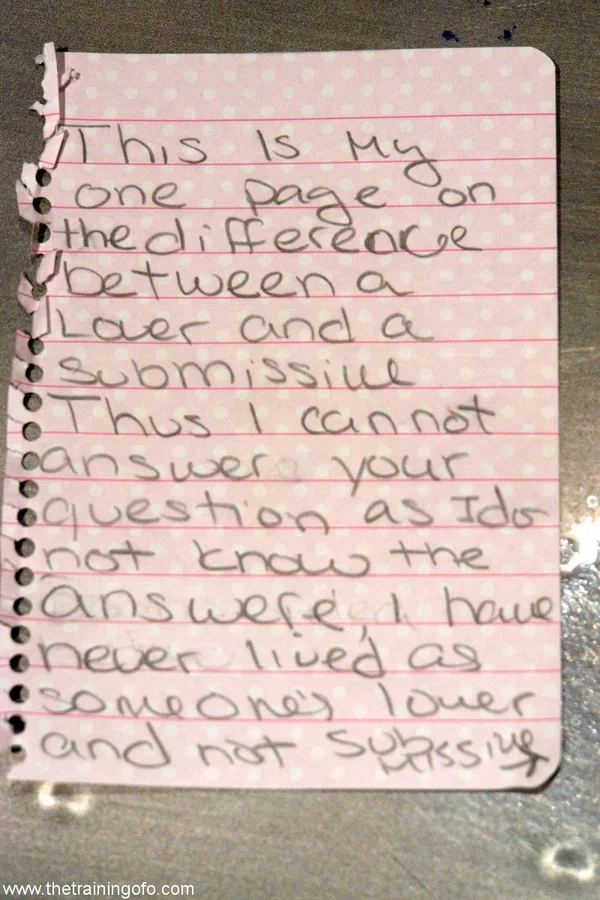 This Is My
one page on
the difference
between a
Lover and a
submissive
Thus I cannot
answer your
question as I do
not know the
answere, I have
never lived as
someone's lover
and not submissive
www.thetrainingofo.com